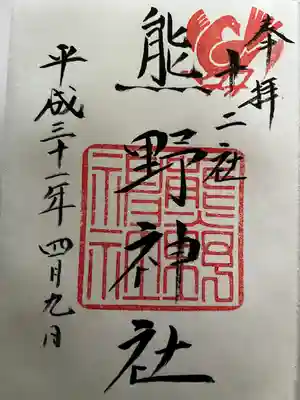 奉拝
十二社
熊野神社
平成三十一年 四月九日